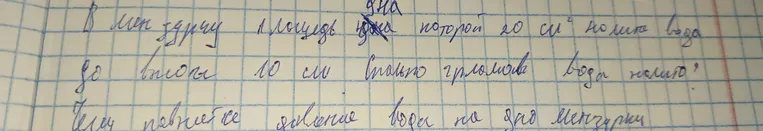 В мензурку площадь дна которой 20 см² налита вода
до высоты 10 см Сколько граммов воды налито?
Чему равняется давление воды на дно мензурки